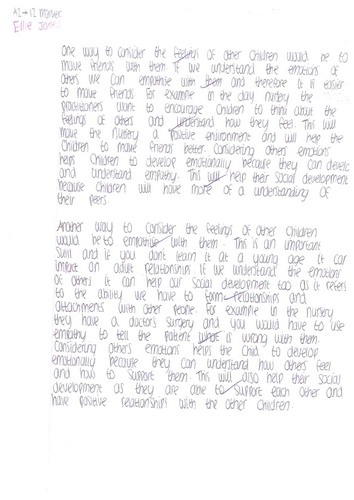 AI → 12 Marker
Ellie Jones
One way to consider the feelings of other children would be to
make friends with them. If we understand the emotions of
others we can empathise with them and therefore it is easier
to make friends. For example in the day nursery the
practitioners want to encourage children to think about the
feelings of others and understand how they feel. This will
make the nursery a positive environment and will help the
children to make friends better. Considering others emotions
helps children to develop emotionally because they can develop
and understand empathy. This will help their social development
because children will have more of a understanding of
their peers.
Another way to consider the feelings of other children
would be to empathise with them. This is an important
skill and if you dont learn it at a young age it can
impact on adult relationships. If we understand the emotions
of others it can help our social development too as it refers
to the ability we have to form relationships and
attachments with other people. For example in the nursery
they have a doctors surgery and you would have to use
empathy to tell the patient what is wrong with them.
Considering others emotions helps the child to develop
emotionally because they can understand how others feel
and how to support them. This will also help their social
development as they are able to support each other and
have positive relationships with the other children.